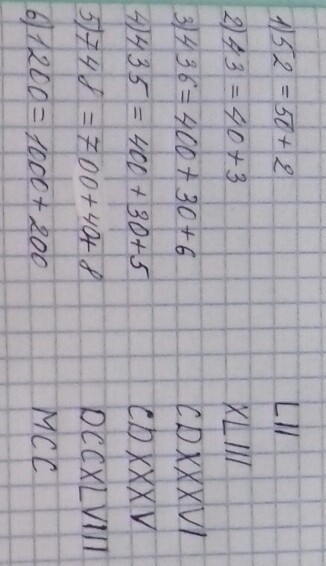 1) 52 = 50 + 2 LII
2) 43 = 40 + 3 XLIII
3) 436 = 400 + 30 + 6 CDXXXVI
4) 435 = 400 + 30 + 5 CDXXXV
5) 748 = 700 + 40 + 8 DCCXLVIII
6) 1200 = 1000 + 200 MCC